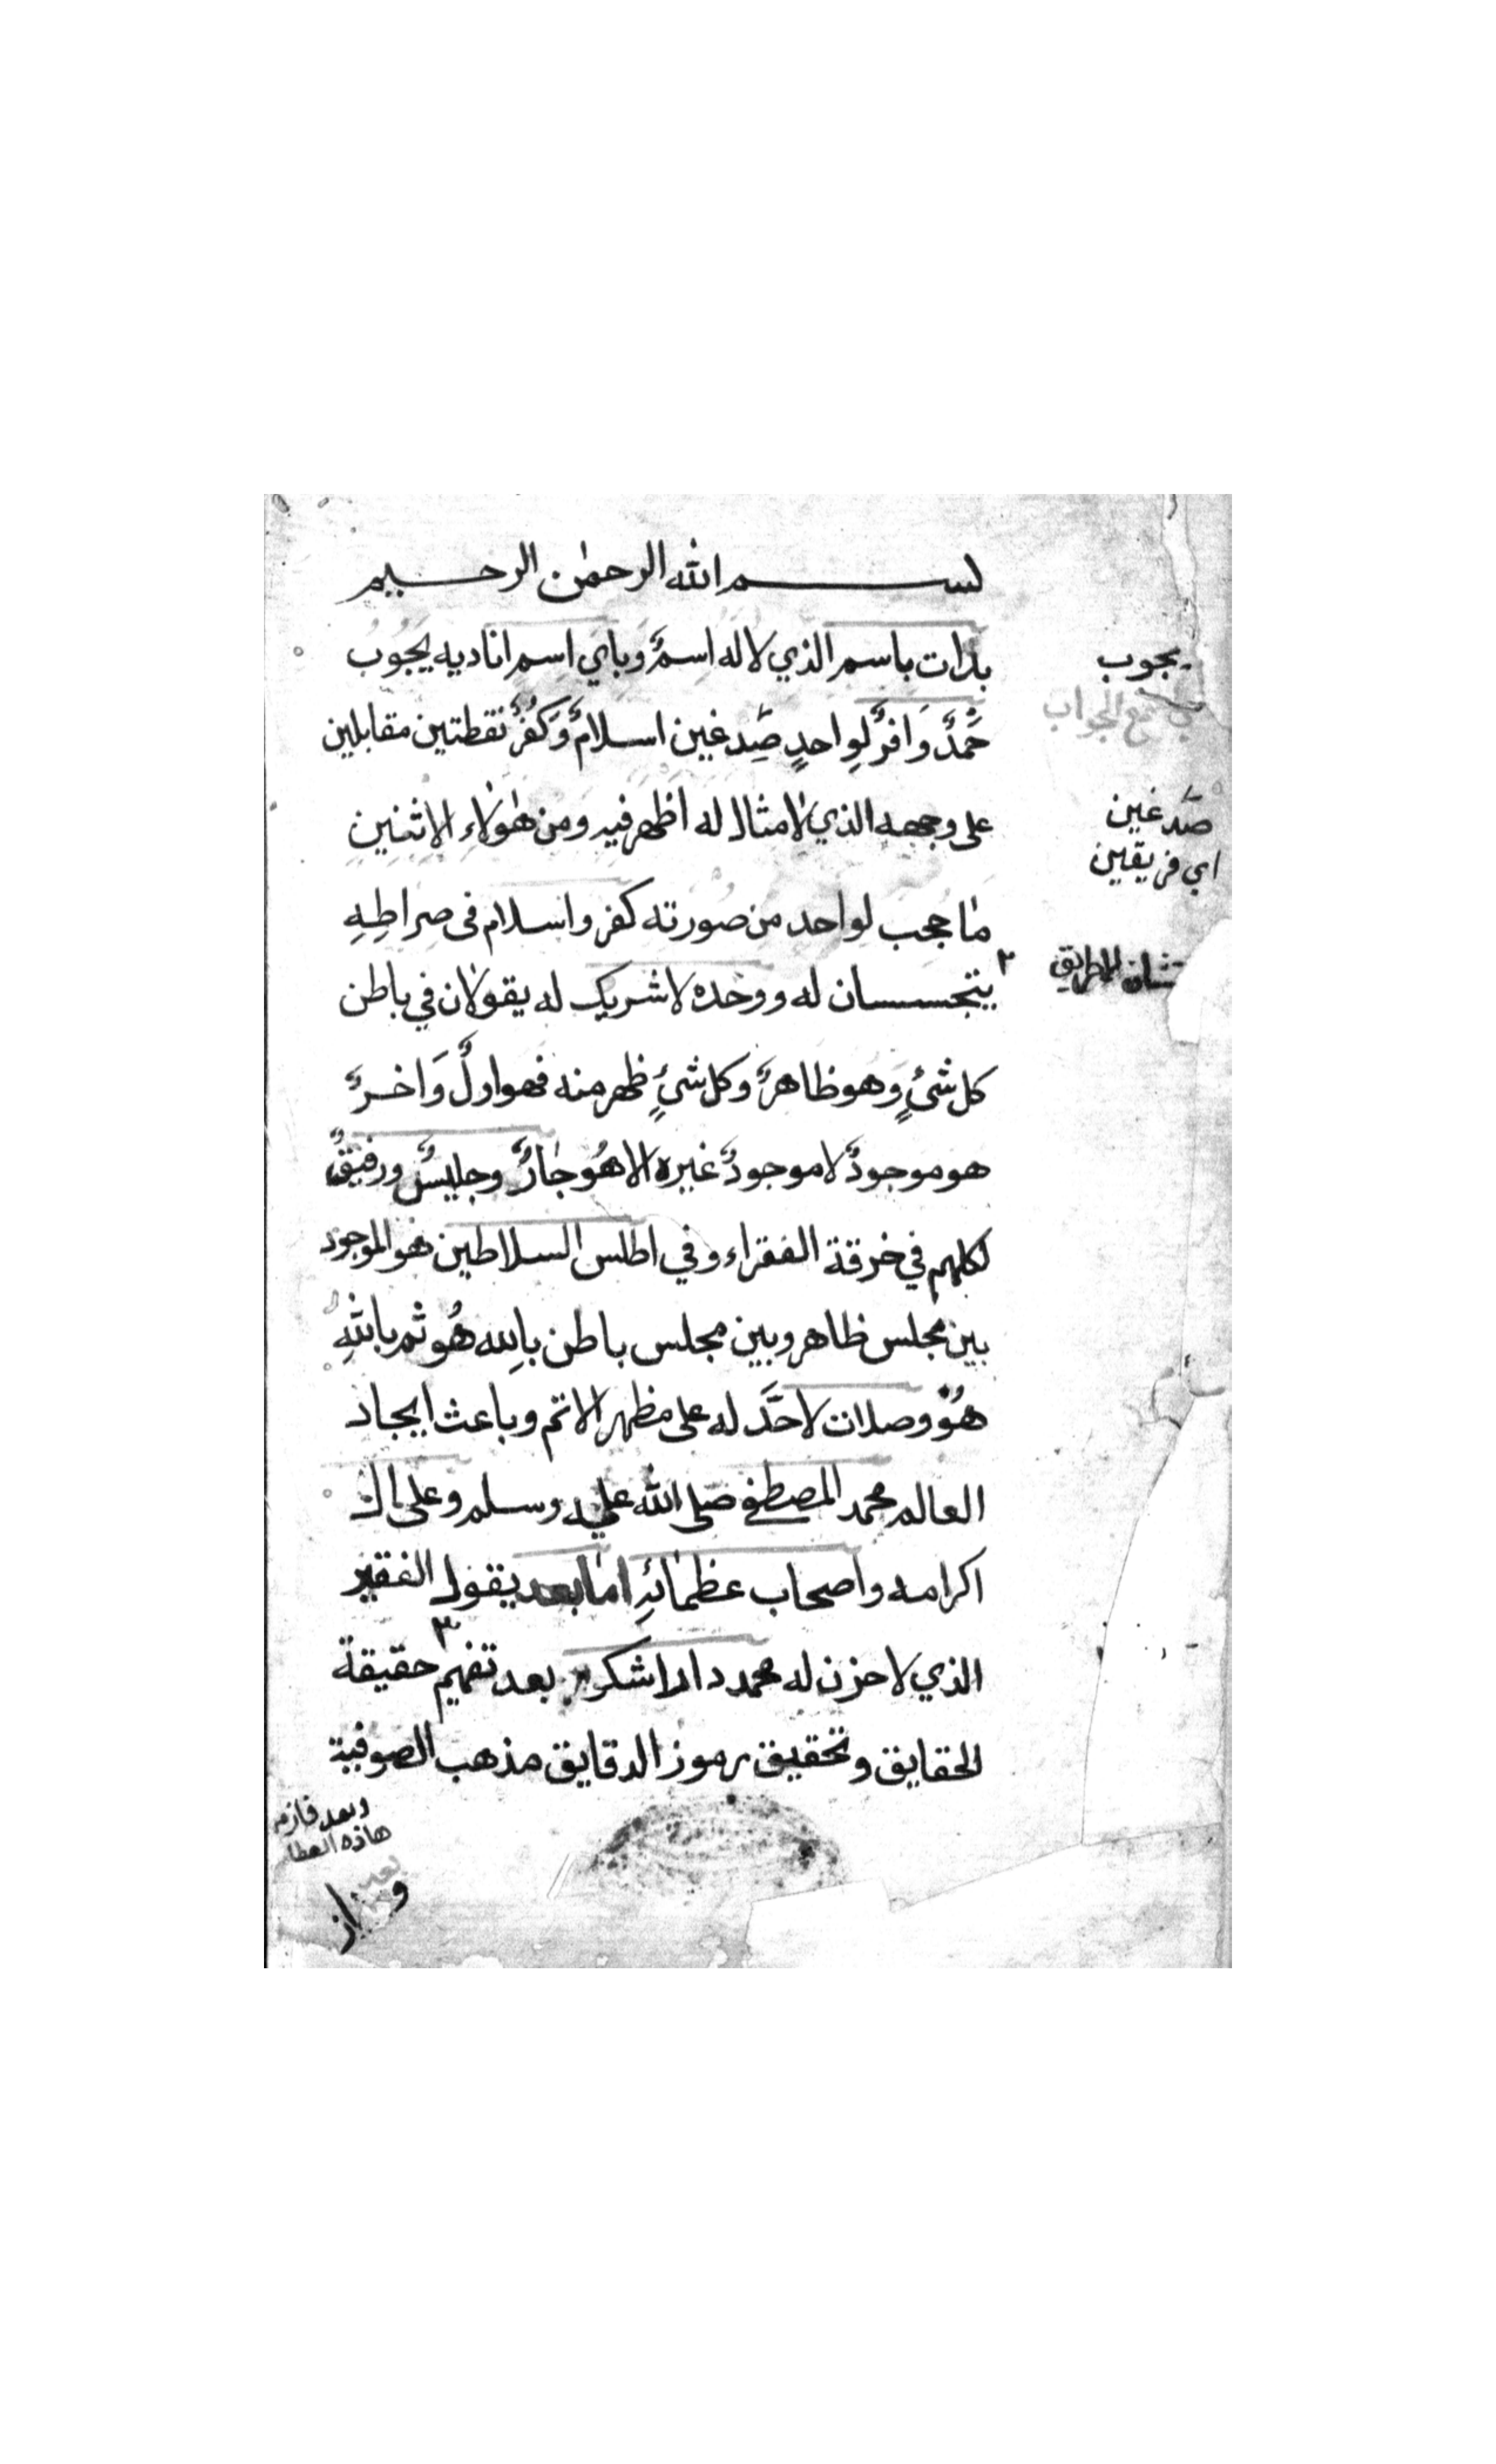 بسم الله الرحمٰن الرحيم
بدات باسم الذي لا له اِسمٌ وباي اسم اناديه يجوبُ
حَمْدٌ وَافرٌ لِواحدٍ صَِدغين اسلامٌ وَكُفرٌ نقطتين مقابلين
على وجهه الذي لامثال له اظهر فيه ومن هٰولاءِ الاثنين
ما حجب لواحد من صورته كفر واسلام فى صراطِهِ
يتجسسان له ووحده لا شريك له يقولان في باطن
كل شئٍ وهو ظاهرٌ وكل شئٍ ظهر منه فهو اولٌ وَاخرٌ
هو موجودٌ لا موجودٌ غيره الا هُو جارٌ وجليسٌ ورفيقٌ
لكلهم في خرقة الفقراء وفي اطلس السلاطين هو الموجود
بين مجلس ظاهر وبين مجلس باطن بالله هُو ثم باللهِ
هُوْ وصلات لاحَدَّ له على مظهر الاتم وباعث ايجاد
العالم محمد المصطفى صلى الله عليه وسلم وعلى ال
اكرامه واصحاب عظمائهِ اما بعد يقول الفقير
الذي لا حزن له محمد داراشكره بعد تفهيم ٣ حقيقة
الحقايق وتحقيق رموز الدقايق مذهب الصوفية
يجوب
مع الجواب
صَدغين
اي فريقين
٢
للطريق
وبعد فازم
هاذه العطا
بعد